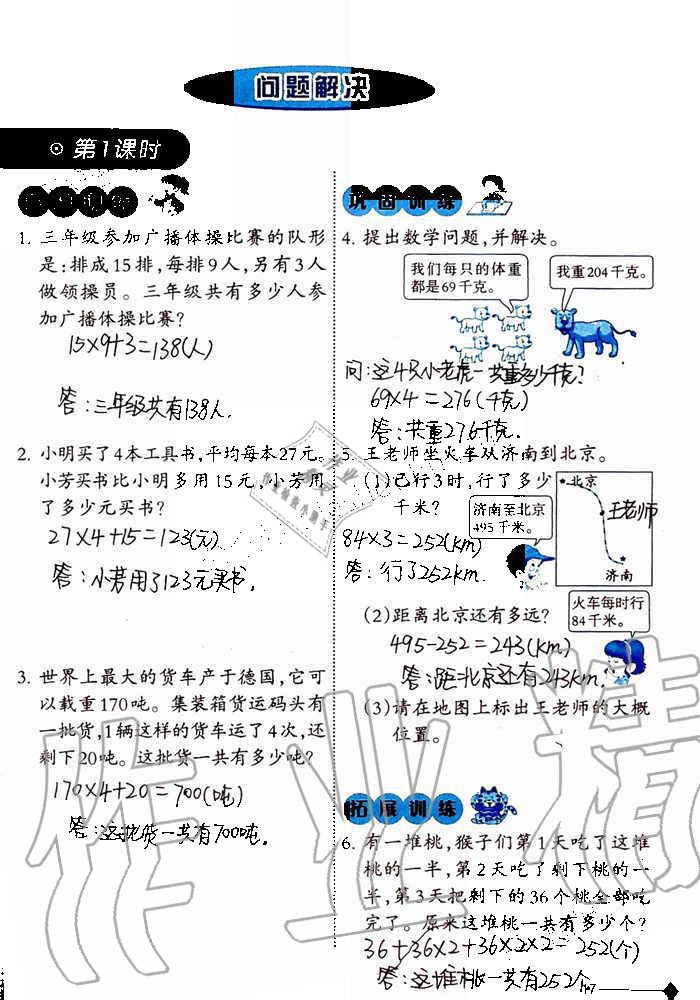 问题解决
第1课时
1. 三年级参加广播体操比赛的队形
是:排成15排,每排9人,另有3人
做领操员。三年级共有多少人参
加广播体操比赛?
15×9+3=138(人)
答:三年级共有138人.
2. 小明买了4本工具书,平均每本27元。
小芳买书比小明多用15元,小芳用
了多少元买书?
27×4+15=123(元)
答:小芳用了123元买书.
3. 世界上最大的货车产于德国,它可
以载重170吨。集装箱货运码头有
一批货,1辆这样的货车运了4次,还
剩下20吨。这批货一共有多少吨?
170×4+20=700(吨)
答:这批货一共有700吨.
巩固训练
4. 提出数学问题,并解决。
我们每只的体重
都是69千克。
我重204千克。
问:这4只小老虎一共重多少千克?
69×4=276(千克)
答:共重276千克.
5. 王老师坐火车从济南到北京。
(1)已行3时,行了多少
千米?
济南至北京
495千米。
北京
王老师
济南
84×3=252(km)
答:行了252km.
(2)距离北京还有多远?
火车每时行
84千米。
495-252=243(km)
答:距北京还有243km.
(3)请在地图上标出王老师的大概
位置。
拓展训练
6. 有一堆桃,猴子们第1天吃了这堆
桃的一半,第2天吃了剩下桃的一
半,第3天把剩下的36个桃全部吃
完了。原来这堆桃一共有多少个?
36+36×2+36×2×2=252(个)
答:这堆桃一共有252个.
作业精